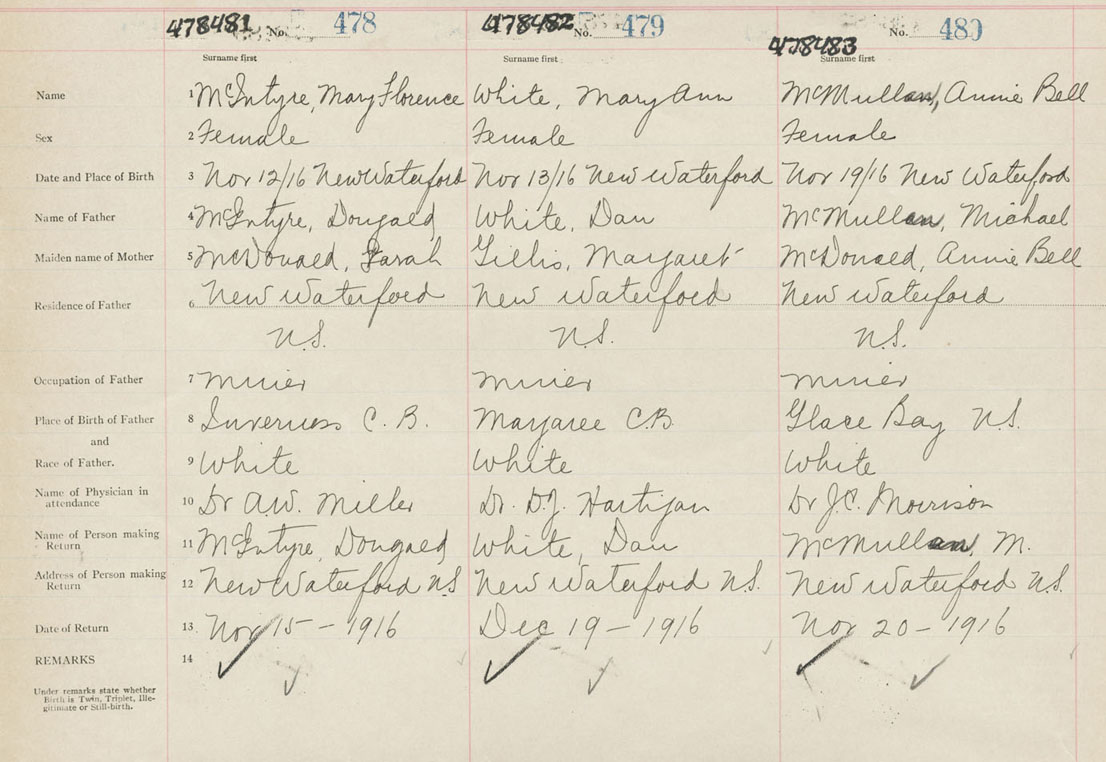 478481 No. 478 478482 No. 479 478483 No. 480
Surname first Surname first Surname first
Name 1 McIntyre, Mary Florence White, Mary Ann McMullan, Annie Bell
Sex 2 Female Female Female
Date and Place of Birth 3 Nov 12/16 New Waterford Nov 13/16 New Waterford Nov 19/16 New Waterford
Name of Father 4 McIntyre, Dougald White, Dan McMullan, Michael
Maiden name of Mother 5 McDonald, Sarah Gillis, Margaret McDonald, Annie Bell
Residence of Father 6 New Waterford New Waterford New Waterford
N.S. N.S. N.S.
Occupation of Father 7 Miner Miner Miner
Place of Birth of Father 8 Inverness C.B. Margaree C.B. Glace Bay N.S.
and
Race of Father. 9 White White White
Name of Physician in
attendance 10 Dr A.W. Miller Dr. D.J. Hartigan Dr J.C. Morrison
Name of Person making
Return 11 McIntyre, Dougald White, Dan McMullan, M.
Address of Person making
Return 12 New Waterford N.S. New Waterford N.S. New Waterford N.S.
Date of Return 13 Nov 15 - 1916 Dec 19 - 1916 Nov 20 - 1916
REMARKS 14
Under remarks state whether
Birth is Twin, Triplet, Ille-
gitimate or Still-birth.